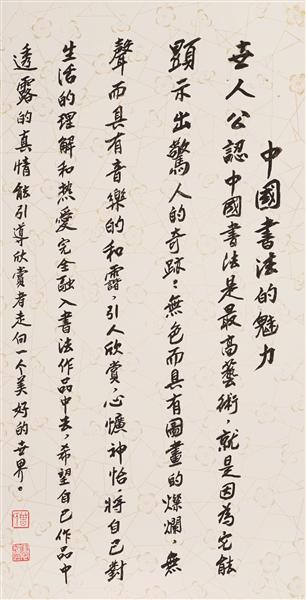 中國書法的魅力
世人公認中國書法是最高藝術，就是因為它能
顯示出驚人的奇跡：無色而具有圖畫的燦爛，無
聲而具有音樂的和露，引人欣賞，心懭神怡。將自己對
生活的理解和热爱完全融入書法作品中去，希望自己作品中
透露的真情能引導欣賞者走向一个美好的世界。